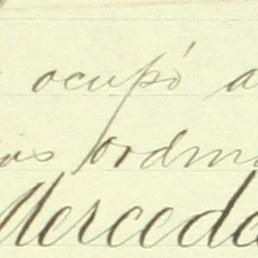 ocupó a
ordin
Merceda